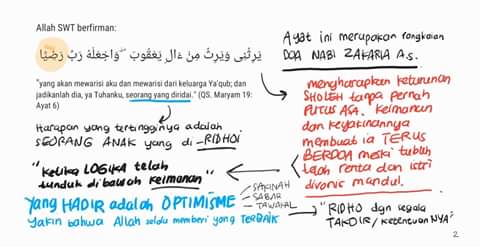 Allah SWT berfirman:
يَرِثُنِى وَيَرِثُ مِنْ ءَالِ يَعْقُوبَ ۖ وَٱجْعَلْهُ رَبِّ رَضِيًّا
"yang akan mewarisi aku dan mewarisi dari keluarga Ya'qub; dan
jadikanlah dia, ya Tuhanku, seorang yang diridai." (QS. Maryam 19:
Ayat 6)
Ayat ini merupakan rangkaian
DOA NABI ZAKARIA A.S.
mengharapkan keturunan
SHOLEH tanpa pernah
PUTUS ASA. Keimanan
dan keyakinannya
membuat ia TERUS
BERDOA meski tubuh
telah renta dan istri
divonis mandul.
Harapan yang tertingginya adalah
SEORANG ANAK yang di-RIDHOI
"Ketika LOGIKA telah
tunduk di bawah KEIMANAN"
Yang HADIR adalah OPTIMISME
yakin bahwa Allah selalu memberi yang TERBAIK
- SAKINAH
- SABAR
- TAWAKAL
"RIDHO dan segala
TAKDIR/KetentuanNYA"
2